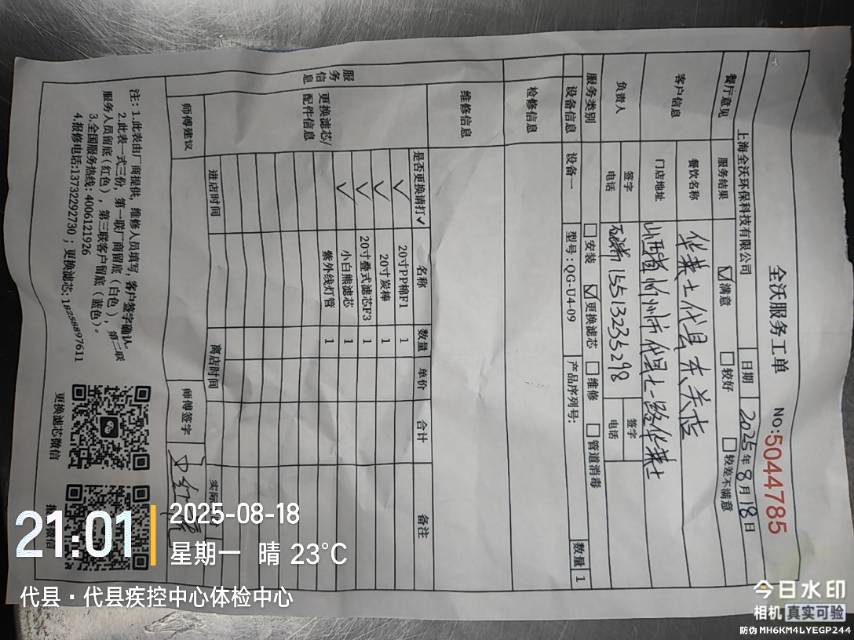 全沃服务工单
NO:5044785
上海全沃环保科技有限公司
日期 2025年8月18日
餐厅意见 服务结果 ☑满意 □较好 □较差不满意
客户信息 餐饮名称 华莱士代县东关店
门店地址 山西省忻州市代县七一路华莱士
负责人 签字 签字
电话 15513235298 电话
服务类别 □安装 ☑更换滤芯 □维修 □管道消毒
设备信息 设备一 型号:QG-U4-09 产品序列号: 数量 1
检修信息
维修信息
服务信息
更换滤芯/配件信息
是否更换请打✓ 名称 数量 单价 合计 备注
✓ 20寸PP棉F1 1
✓ 20寸炭棒 1
✓ 20寸叠式滤芯F3 1
✓ 小白熊滤芯 1
紫外线灯管 1
进店时间 离店时间
师傅建议 师傅签字
注:1.此表由厂商提供,维修人员填写,客户签字确认。
2.此表一式三份,第一联厂商留底(白色),第二联
服务人员留底(红色),第三联客户留底(蓝色)。
3.全国服务热线:4006121926
4.报修电话:13732292730;更换滤芯:18258897611
更换滤芯微信
21:01
2025-08-18
星期一 晴 23℃
代县·代县疾控中心体检中心
今日水印
相机 真实可验
防伪 MH6KM4LYEGP244